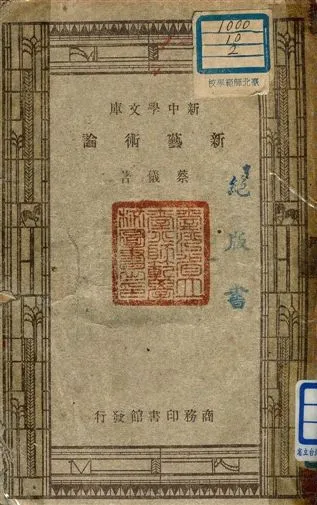 1000
10
2
臺北師範學校
新中學文庫
新藝術論
蔡儀著
絕版書
商務印書館發行